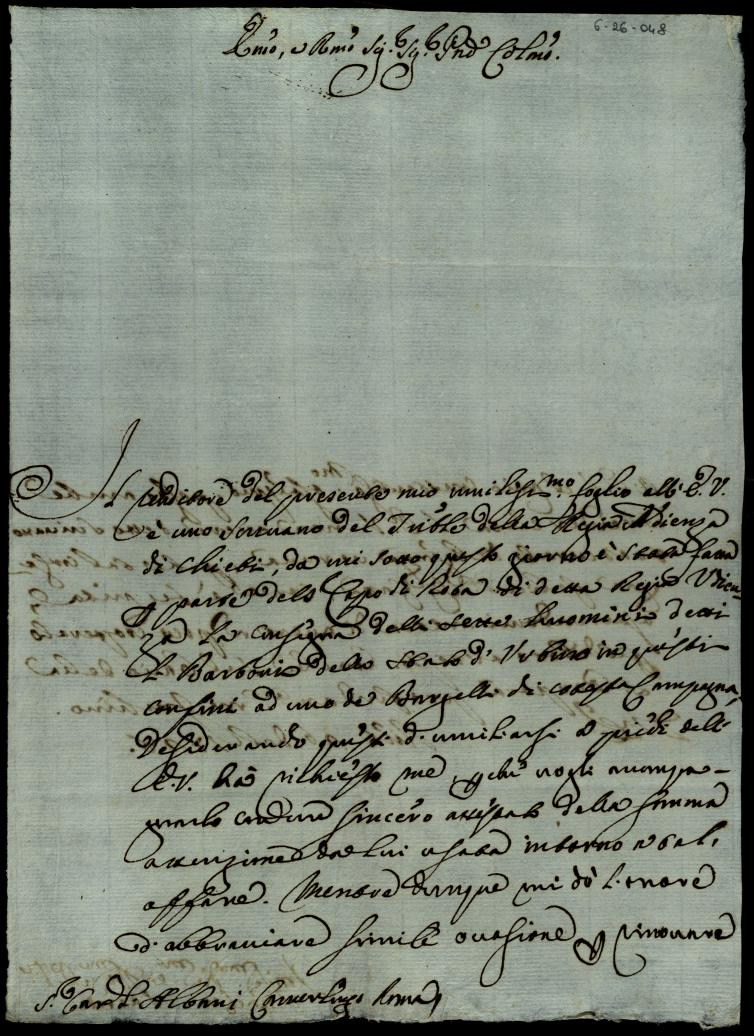 6-26-048
Emo, e Rmo Sig.r Sig.r Pne Colmo.
Il tenditore del presente mio umilissmo. foglio all'E.V.
è uno scrivano del Trible della Regia Udienza
di Chieti, da cui sotto questo giorno è stata fatta
parte dell Capo di Rota di detta Regia Udien-
za la consegna delli sette huomini detti
li Barboni dello Stato d'Urbino in questi
confini ad uno de Bargelli di cotesta Campagna,
Desiderando questi d'umiliarsi a piedi dell'
E.V. hà richiesto me, che vogli accompa-
gnarlo con sincero attestato della somma
attenzione da lui usata intorno a tal,
affare. Mentre dunque mi dò l'onore
d'abbracciare simile occasione p rinovare
S.r Card.l Albani Camerlingo Roma